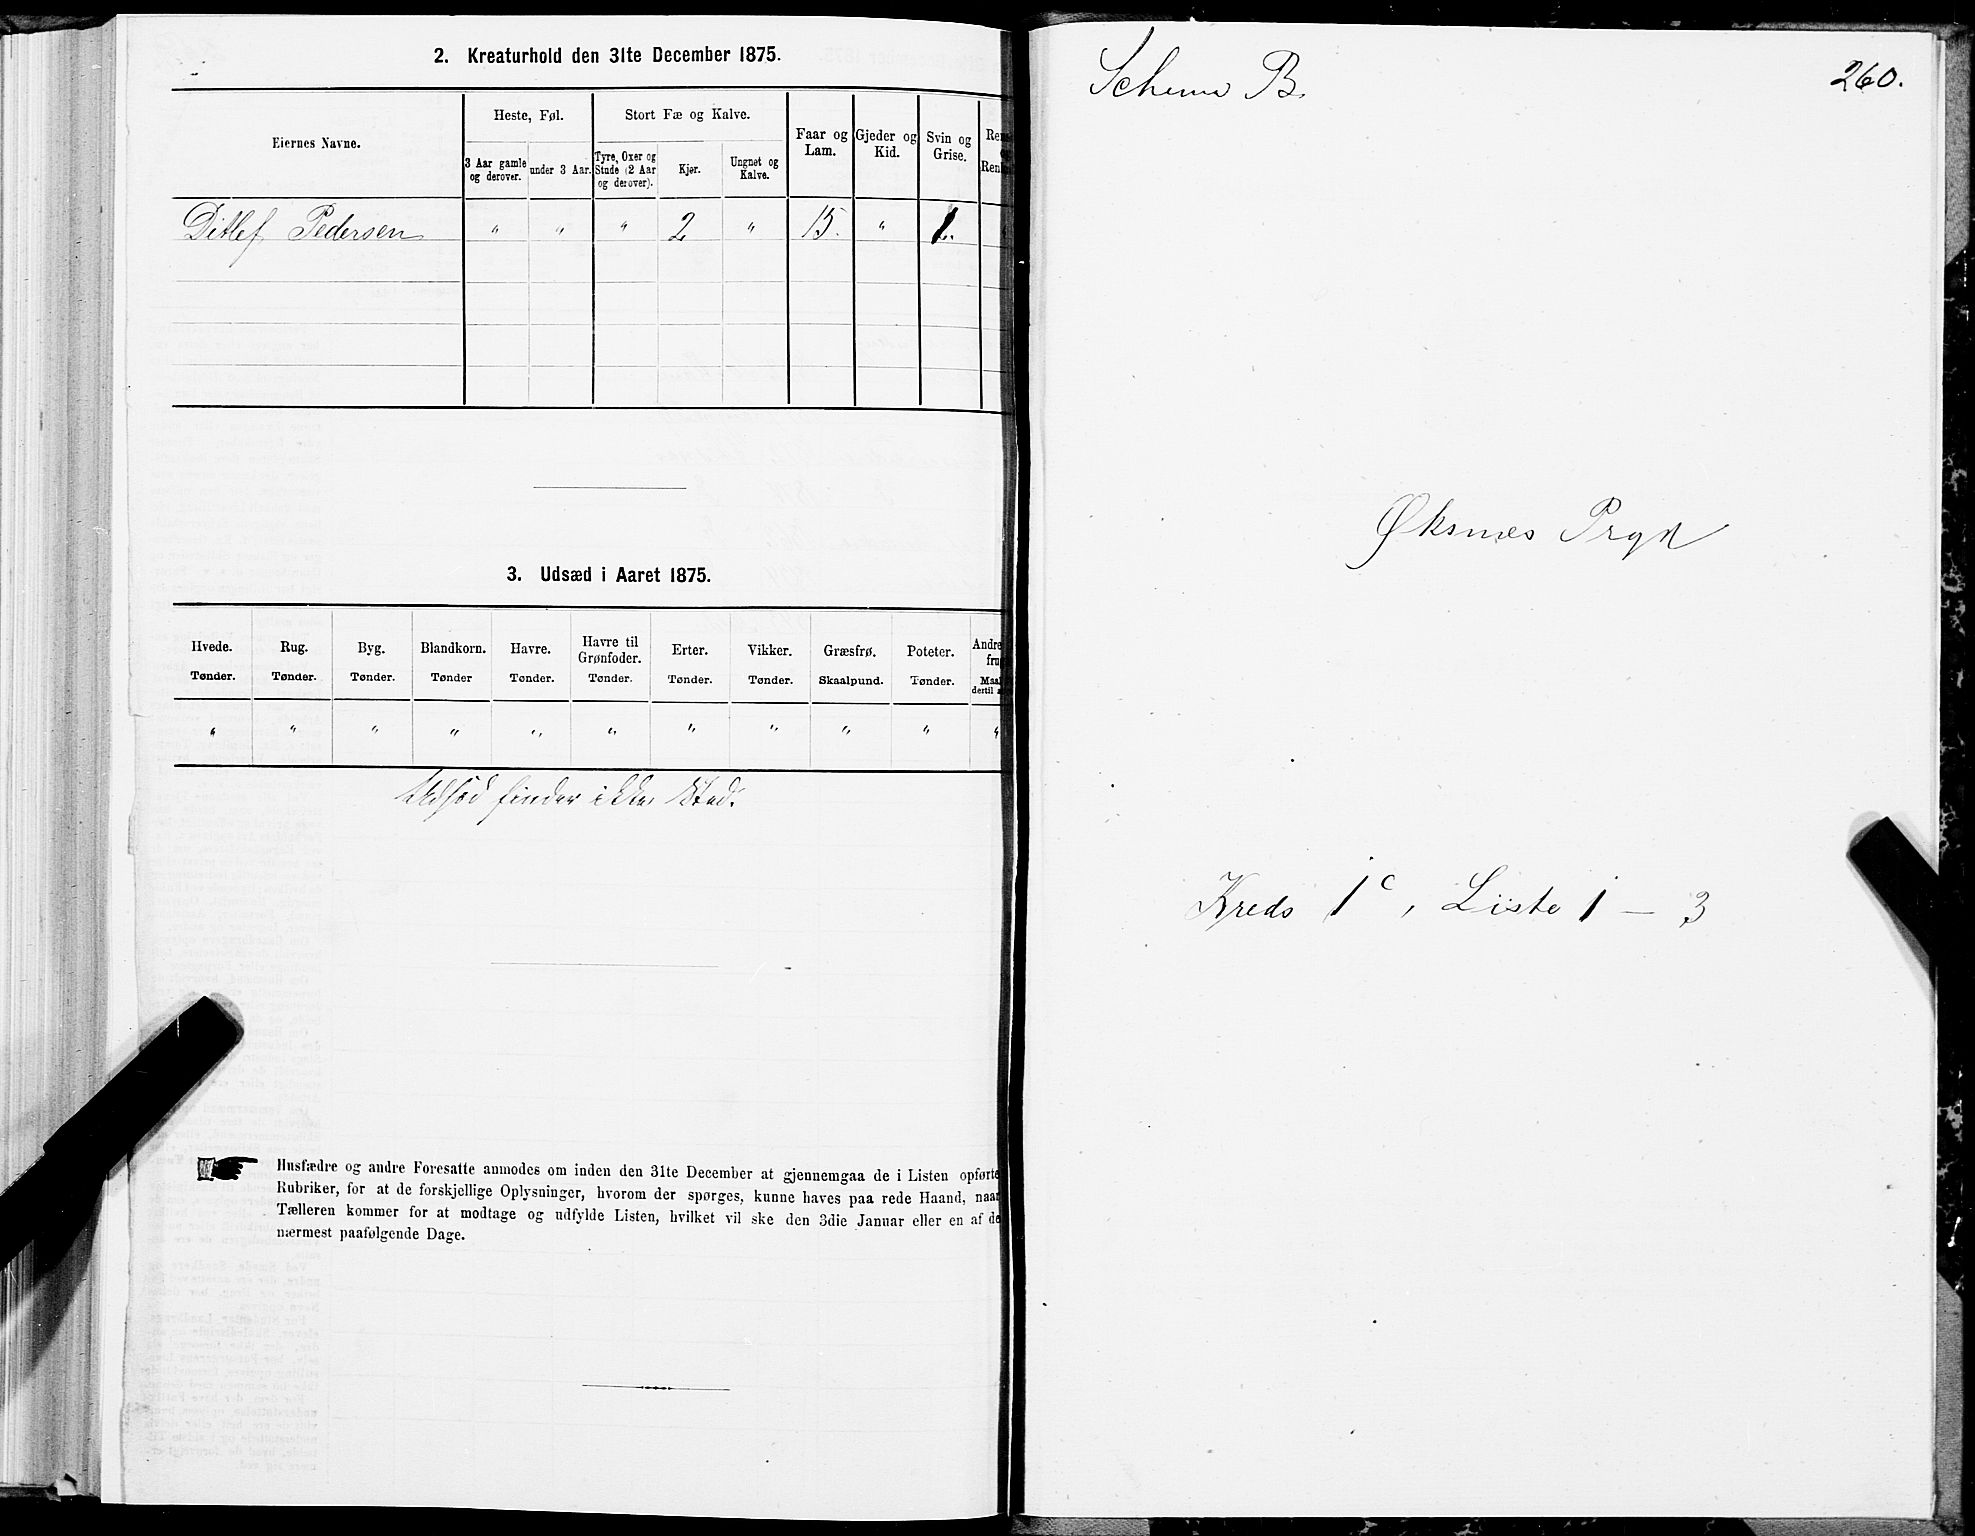 2. Kreaturhold den 31te December 1875.
Eiernes Navne.
Heste, Føl.
Stort Fæ og Kalve.
Faar og Lam.
Gjeder og Kid.
Svin og Grise.
3 Aar gamle og derover.
under 3 Aar.
Tyre, Oxer og Stude (2 Aar og derover).
Kjør.
Ungnøt og Kalve.
Ditlef Pedersen " " " 2 " 15. " 1.
3. Udsæd i Aaret 1875.
Hvede. Rug. Byg. Blandkorn. Havre. Havre til Grønfoder. Erter. Vikker. Græsfrø. Poteter. Andre
Tønder. Tønder. Tønder. Tønder Tønder. Tønder. Tønder. Tønder. Skaalpund. Tønder.
" " " " " " " " " " "
Udsød finder ikke Sted.
Husfædre og andre Foresatte anmodes om inden den 31te December at gjennemgaa de i Listen opførte
Rubriker, for at de forskjellige Oplysninger, hvorom der spørges, kunne haves paa rede Haand, naar
Tælleren kommer for at modtage og udfylde Listen, hvilket vil ske den 3die Januar eller en af de
nærmest paafølgende Dage.
Schema B.
260.
Øksnes Prgd
Kreds 1c, Liste 1 – 3